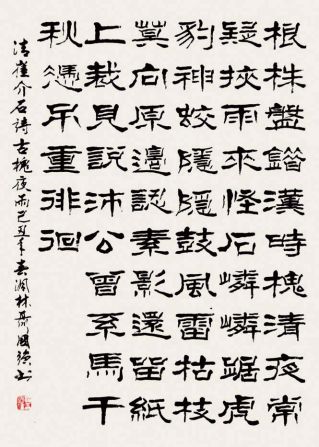 根株盤錯漢時槐清夜常
疑挾雨來怪石嶙嶙踞虎
豹神蛟隱隱鼓風雷枯枝
莫向原邊認素影還留紙
上裁見說沛公曾系馬千
秋憑吊重徘徊
清崔介石詩古槐夜雨己丑年春林國強書